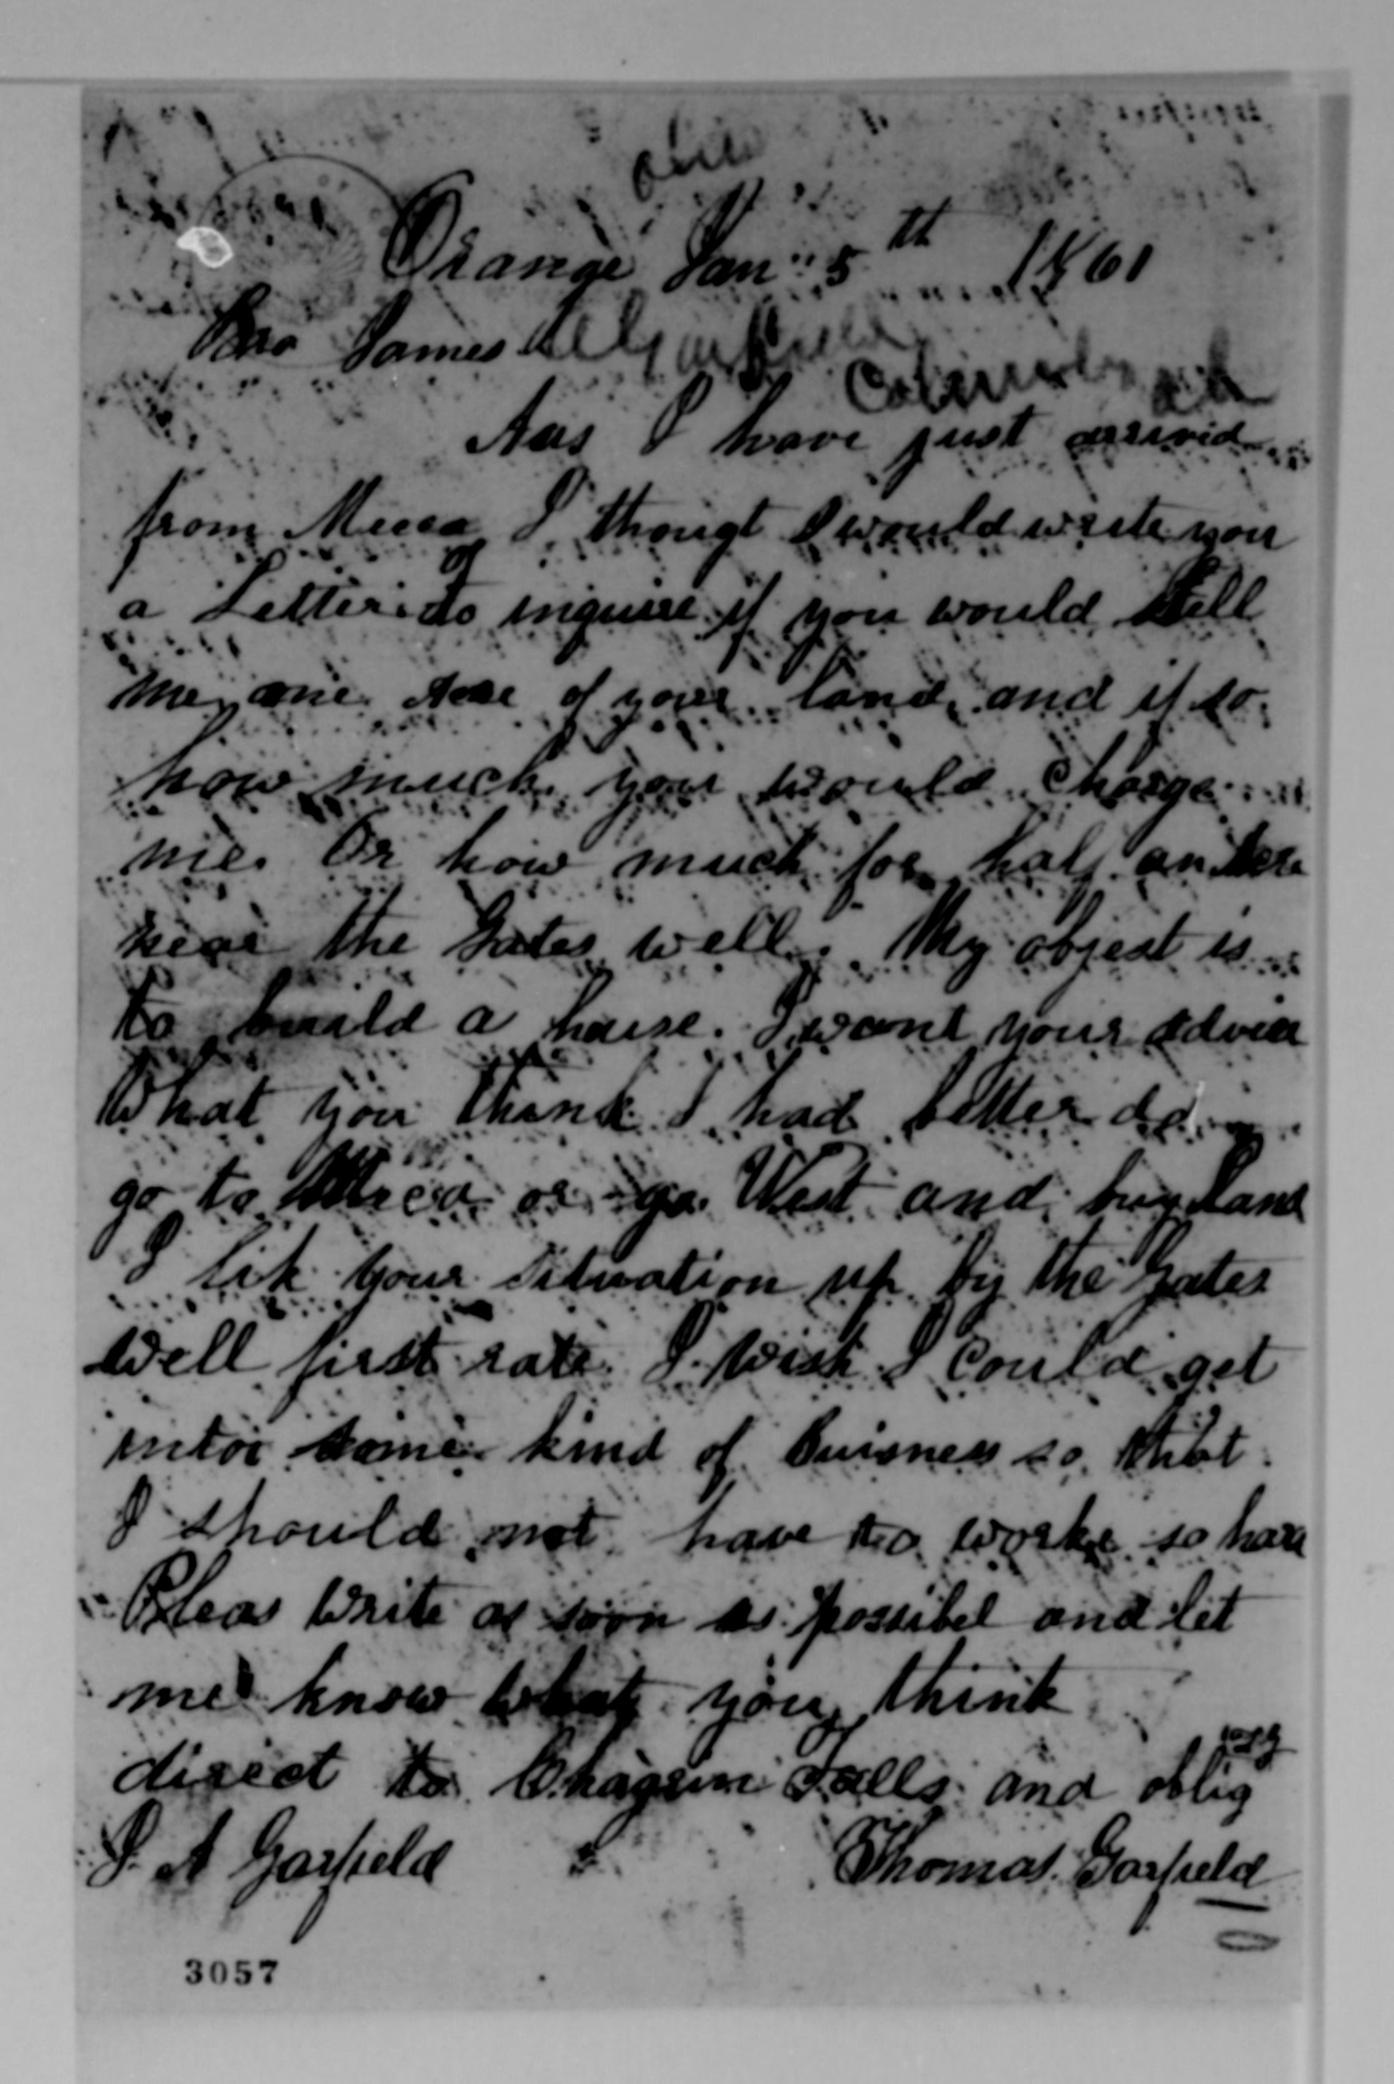 ohio
Orange Jan 5th 1861
Bro James A Garfield
Columbus oh
Aas I have just arrivid
from Mecca I thougt I would write you
a Letter to inquire if you would sell
me one Acre of your land, and if so
how much you would charge
me. Or how much for half an Acre
near the Gates well. My object is
to build a house. I want your advice
What you think I had better do
go to Mecca or go West and buy land
I lik your situation up by the Gates
well first rate. I wish I could get
intoo some kind of Buisness so that
I should not have to worke so hard
Pleas write as soon as possibel and let
me know what you think
direct to Chagrin Falls and oblig
J. A Garfield Thomas Garfield
3057